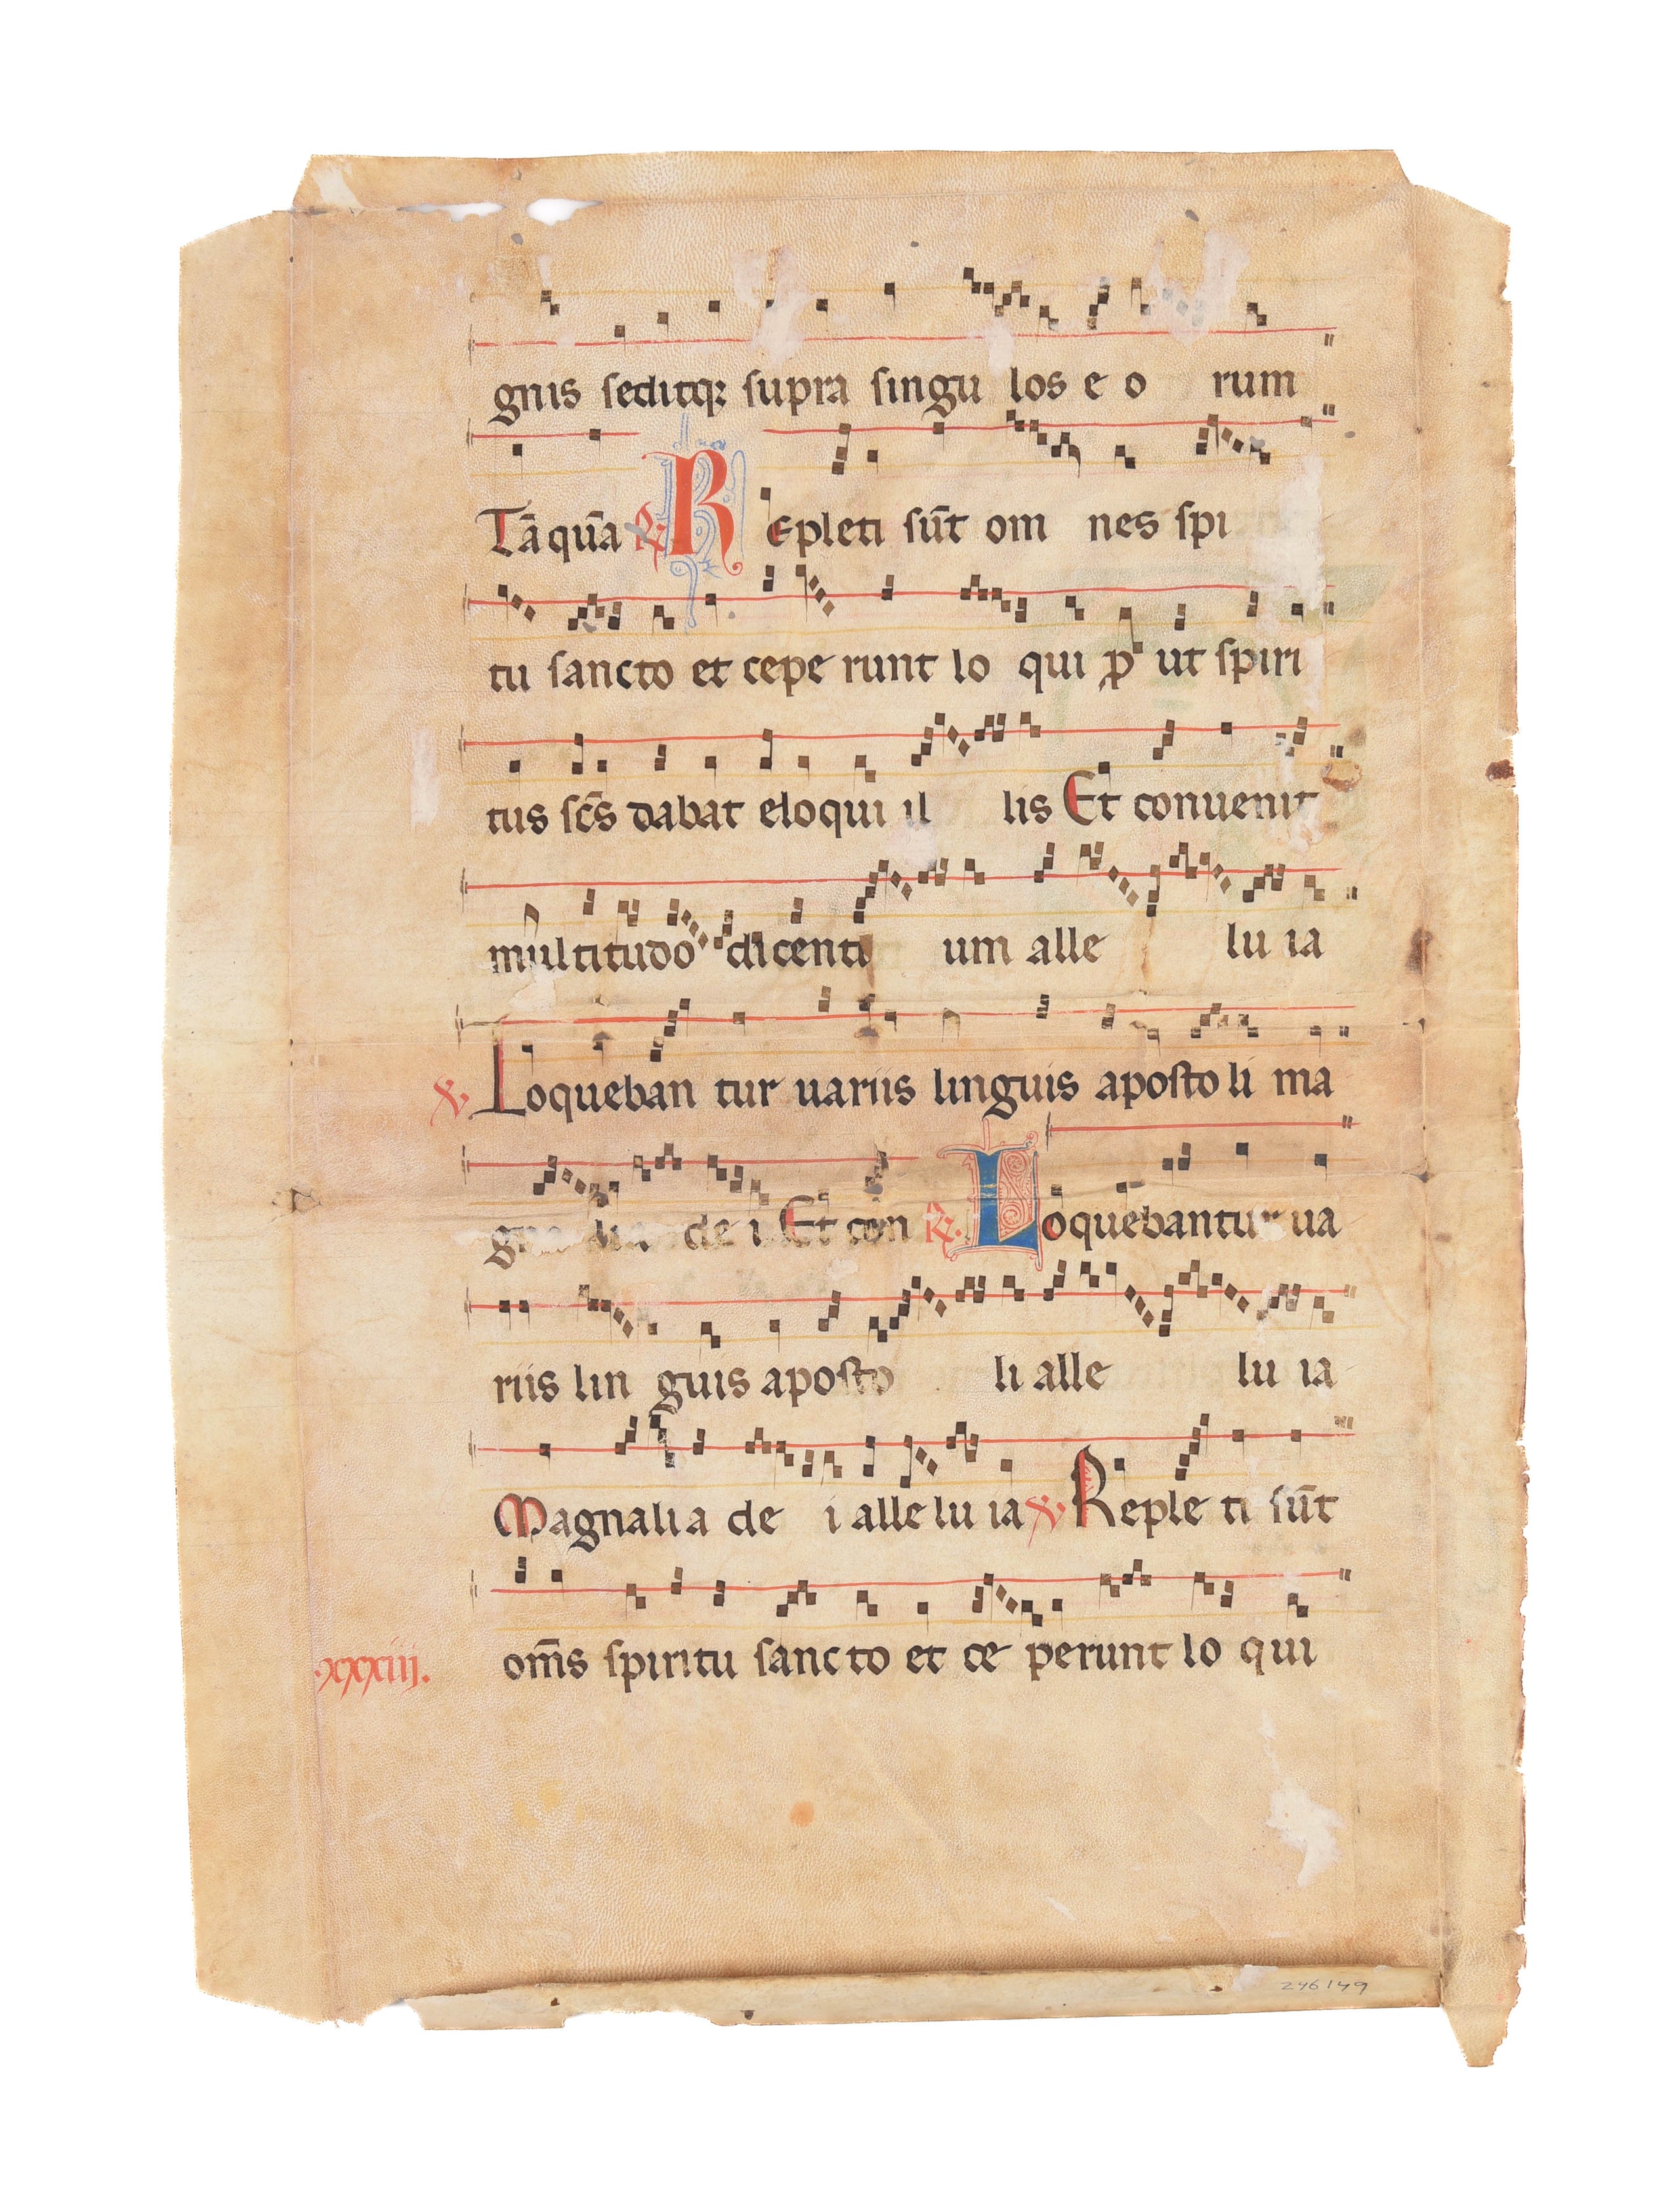 gnis seditqꝫ supra singu los e o rum
Tā quā ℟ Repleti sūt om nes spi
tu sancto et cepe runt lo qui ꝓ ut spiri
tus sc̄s dabat eloqui il lis Et conuenit
multitudo dicenti um alle lu ia
℣ Loqueban tur uariis linguis aposto li ma
de i Et con ℟. Loquebantur ua
riis lin guis aposto li alle lu ia
Magnalia de i alle lu ia ℣ Reple ti sūt
om̄s spiritu sanc to et ce perunt lo qui
.xxxiij.
246149